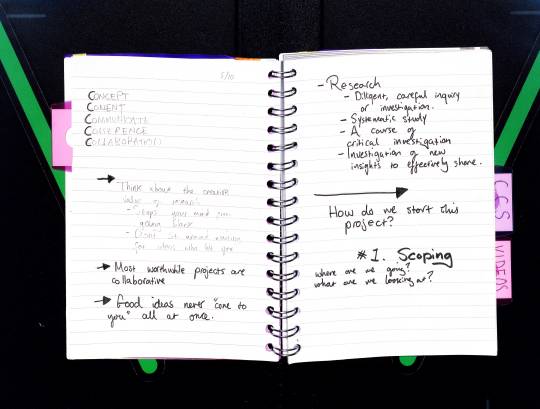 5/10
CONCEPT
CONTENT
COMMUNICATE
COLLABORATION
Think about the creative
value of research
- Stops your mind from
going blank
- Don't sit around waiting
for ideas
Most worthwhile projects are
collaborative
Good ideas never "come to
you" all at once.
- Research
- Diligent, careful inquiry
or investigation.
- Systematic study
- A course of
critical investigation
- Investigation of new
insights to effectively share.
How do we start this
project?
#1. Scoping
where are we going?
what are we looking at?
CCS
VIDEOS